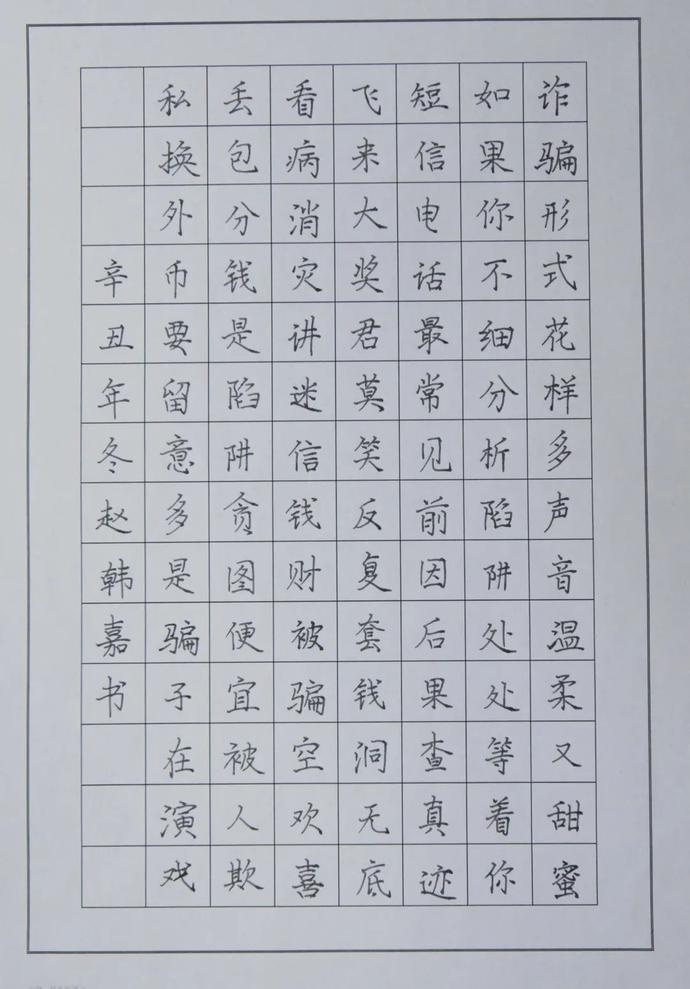 诈骗形式花样多声音温柔又甜蜜
如果你不细分析陷阱处处等着你
短信电话最常见前因后果查真迹
飞来大奖君莫笑反复套钱洞无底
看病消灾讲迷信钱财被骗空欢喜
丢包分钱是陷阱贪图便宜被人欺
私换外币要留意多是骗子在演戏
辛丑年冬赵韩嘉书